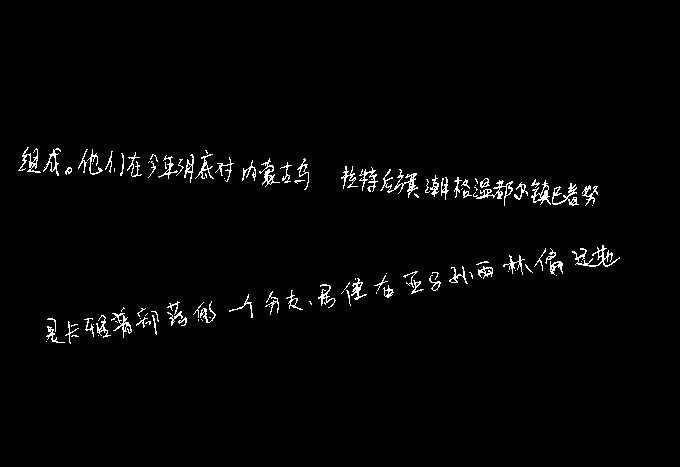 组成。他们在今年3月底对内蒙古乌拉特后旗潮格温都尔镇巴音努
是卡雅普部落的一个分支、居住在亚马孙雨林偏远地